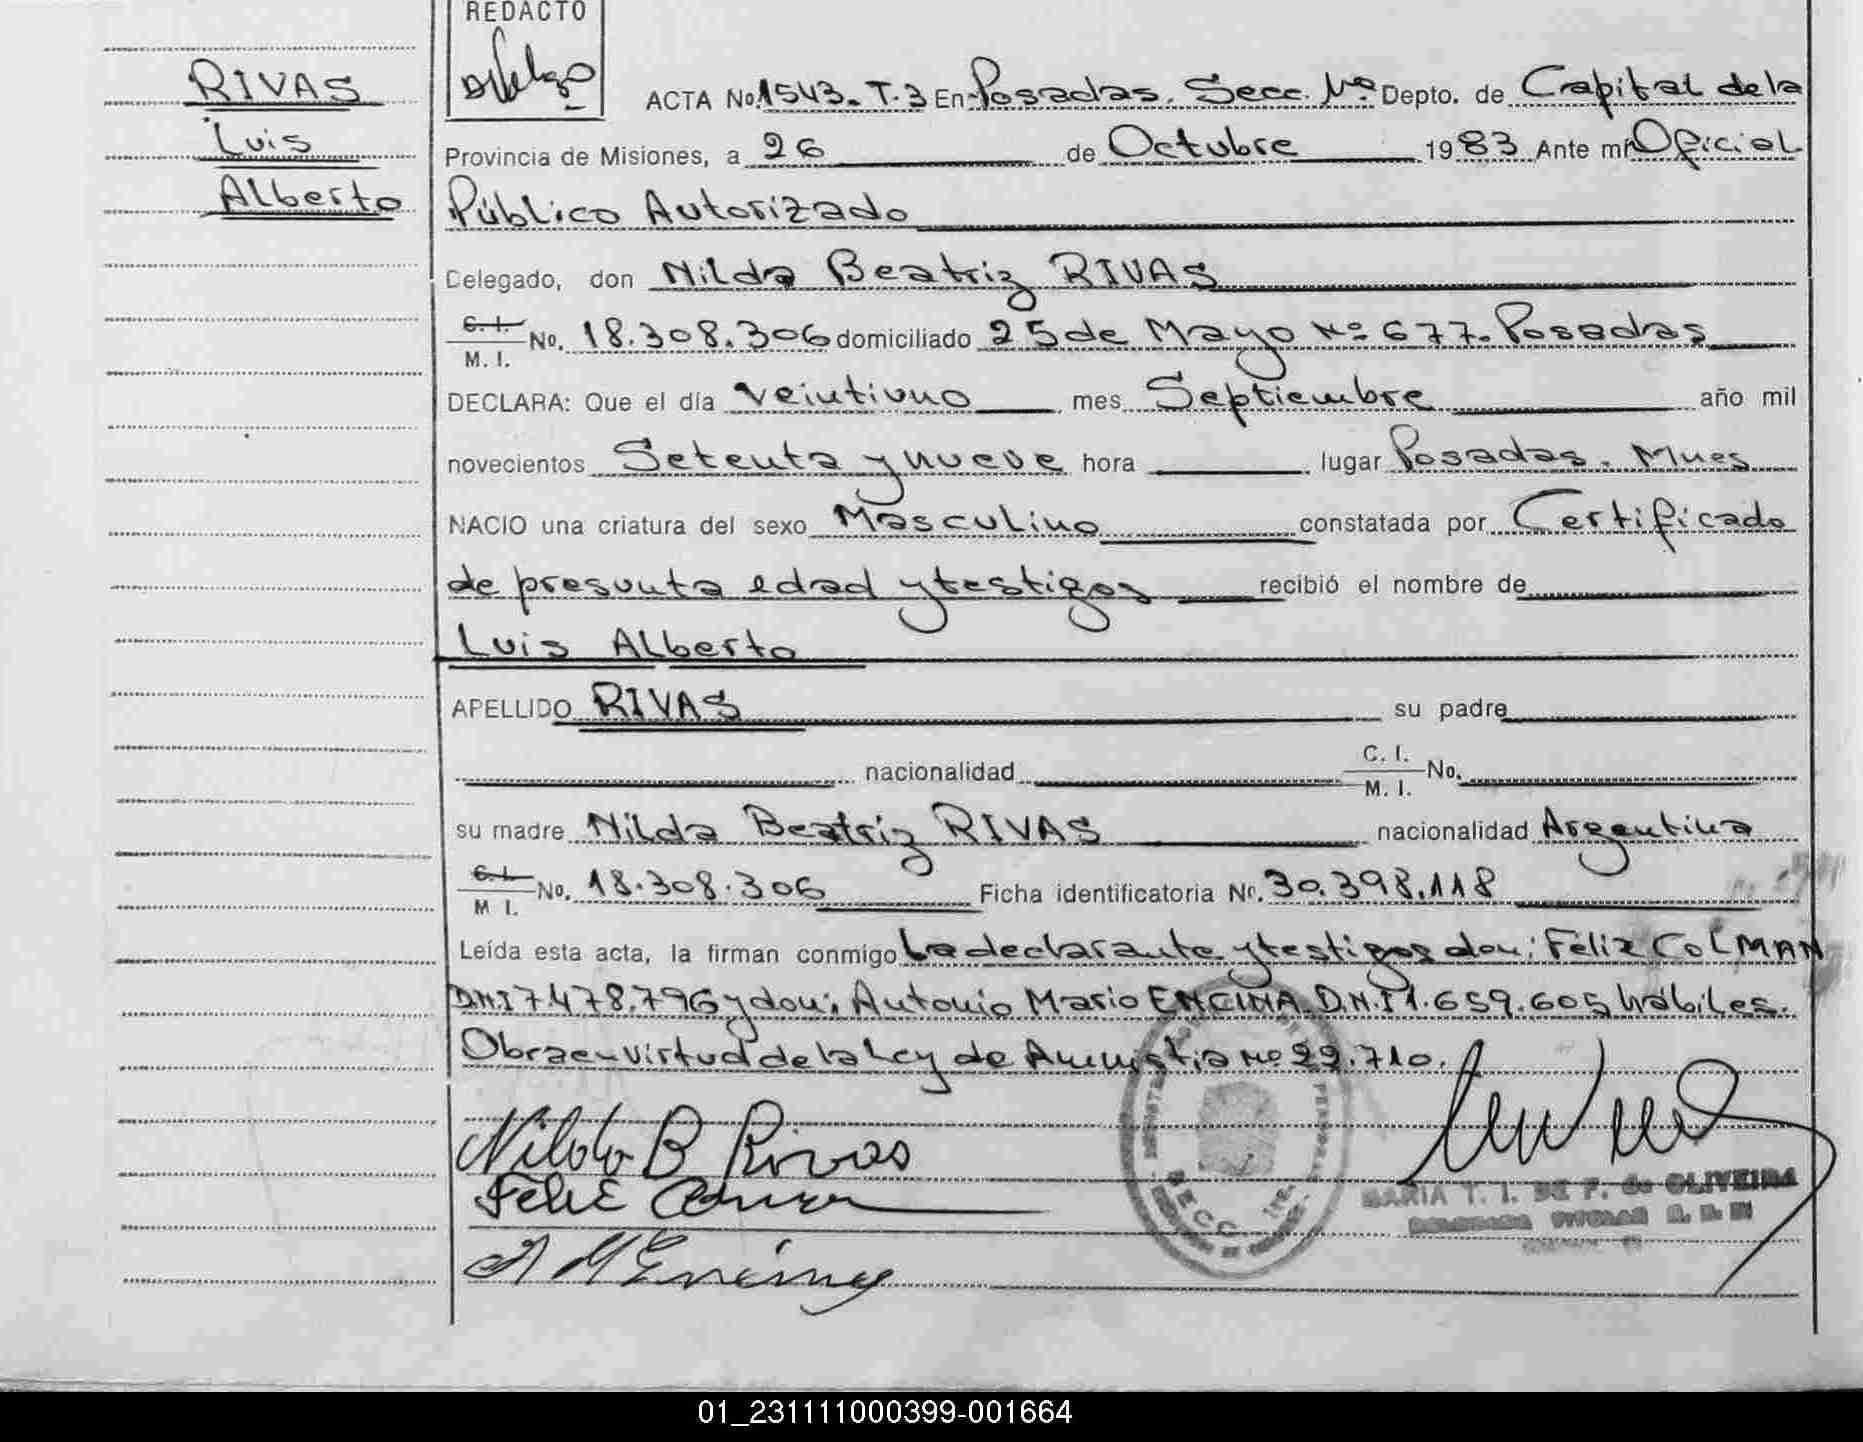 REDACTO
RIVAS
Luis
Alberto
ACTA No. 1543. T.3 En Posadas. Secc. 1ra Depto. de Capital de la
Provincia de Misiones, a 26 de Octubre 1983 Ante mí Oficial
Público Autorizado
Delegado, don Nilda Beatriz RIVAS
C. I. / M. I. No. 18.308.306 domiciliado 25 de Mayo Nº 677. Posadas
DECLARA: Que el día veintiuno mes Septiembre año mil
novecientos Setenta y nueve hora lugar Posadas. Mnes
NACIO una criatura del sexo Masculino constatada por Certificado
de presunta edad y testigos recibió el nombre de
Luis Alberto
APELLIDO RIVAS su padre
nacionalidad C. I. / M. I. No.
su madre Nilda Beatriz RIVAS nacionalidad Argentina
C. I. / M I. No. 18.308.306 Ficha identificatoria Nº. 30.398.118
Leída esta acta, la firman conmigo La declarante y testigos don: Féliz COLMAN
D.N.I 7.478.796 y don: Antonio Mario ENCINA. D.N.I 1.659.605 hábiles.
Obra en virtud de la Ley de Amnistia Nº 22.710.
Nilda B Rivas
SECC.
MARIA T. I. DE F. de OLIVEIRA
01_231111000399-001664